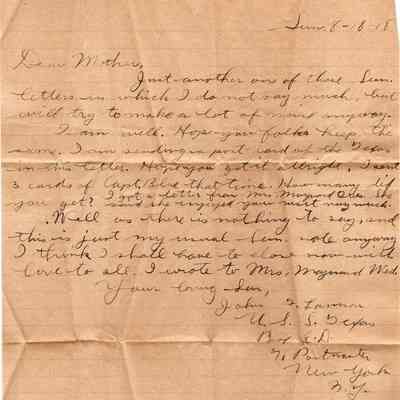 Sun. 8-18-18
Dear Mother,
Just another one of those Sun.
letters in which I do not say much, but
will try to make a lot of noise anyway.
I am well. Hope you folks keep the
same. I am sending a post card of the Texas
in this letter. Hope you get it allright. I sent
3 cards of Capt. that time. How many did
you get? I got a letter from Mrs. Maynard
said she enjoyed your visit very much.
Well as there is nothing to say, and
this is just my usual Sun. note anyway
I think I shall have to close now with
love to all. I wrote to Mrs. Maynard Wed.
Your loving Son,
John
U. S. S. Texas
% Postmaster
New York
N.Y.